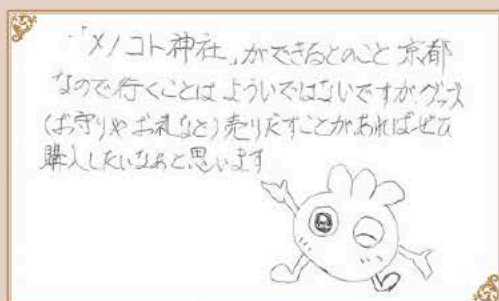 ・「メノコト神社」ができるとのこと 京都
なので行くことは よういではないですが、グッズ
(お守りや お札など)売りだすことがあれば、ぜひ
購入したいなあと思います